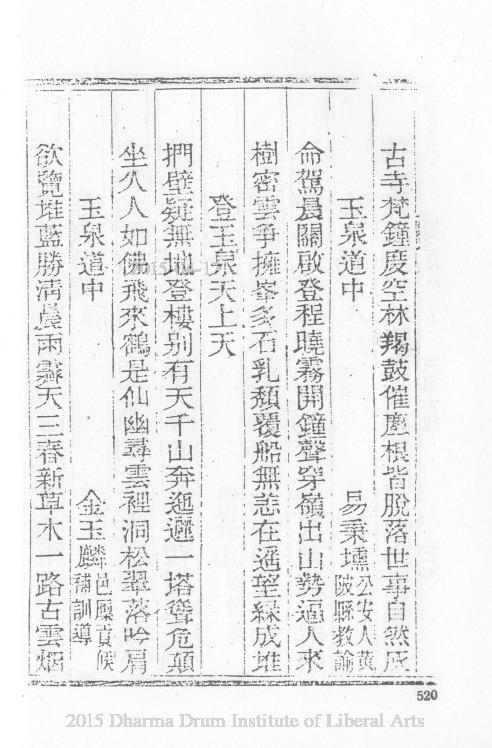 古寺梵鐘慶空林羯鼓催塵根皆脫落世事自然灰
玉泉道中 易秉壎公安人黃陂縣教諭
命駕晨關啟登程曉霧開鐘聲穿嶺出山勢逼人來
樹密雲爭擁峯多石乳頹覆船無恙在遥望綠成堆
登玉泉天上天
捫壁疑無地登樓別有天千山奔迤邐一塔聳危顛
坐久人如佛飛來鶴是仙幽尋雲裡洞松翠落吟肩
玉泉道中 金玉麟邑廩貢候補訓導
欲覽堆藍勝清晨雨霽天三春新草木一路古雲烟
520
2015 Dharma Drum Institute of Liberal Arts